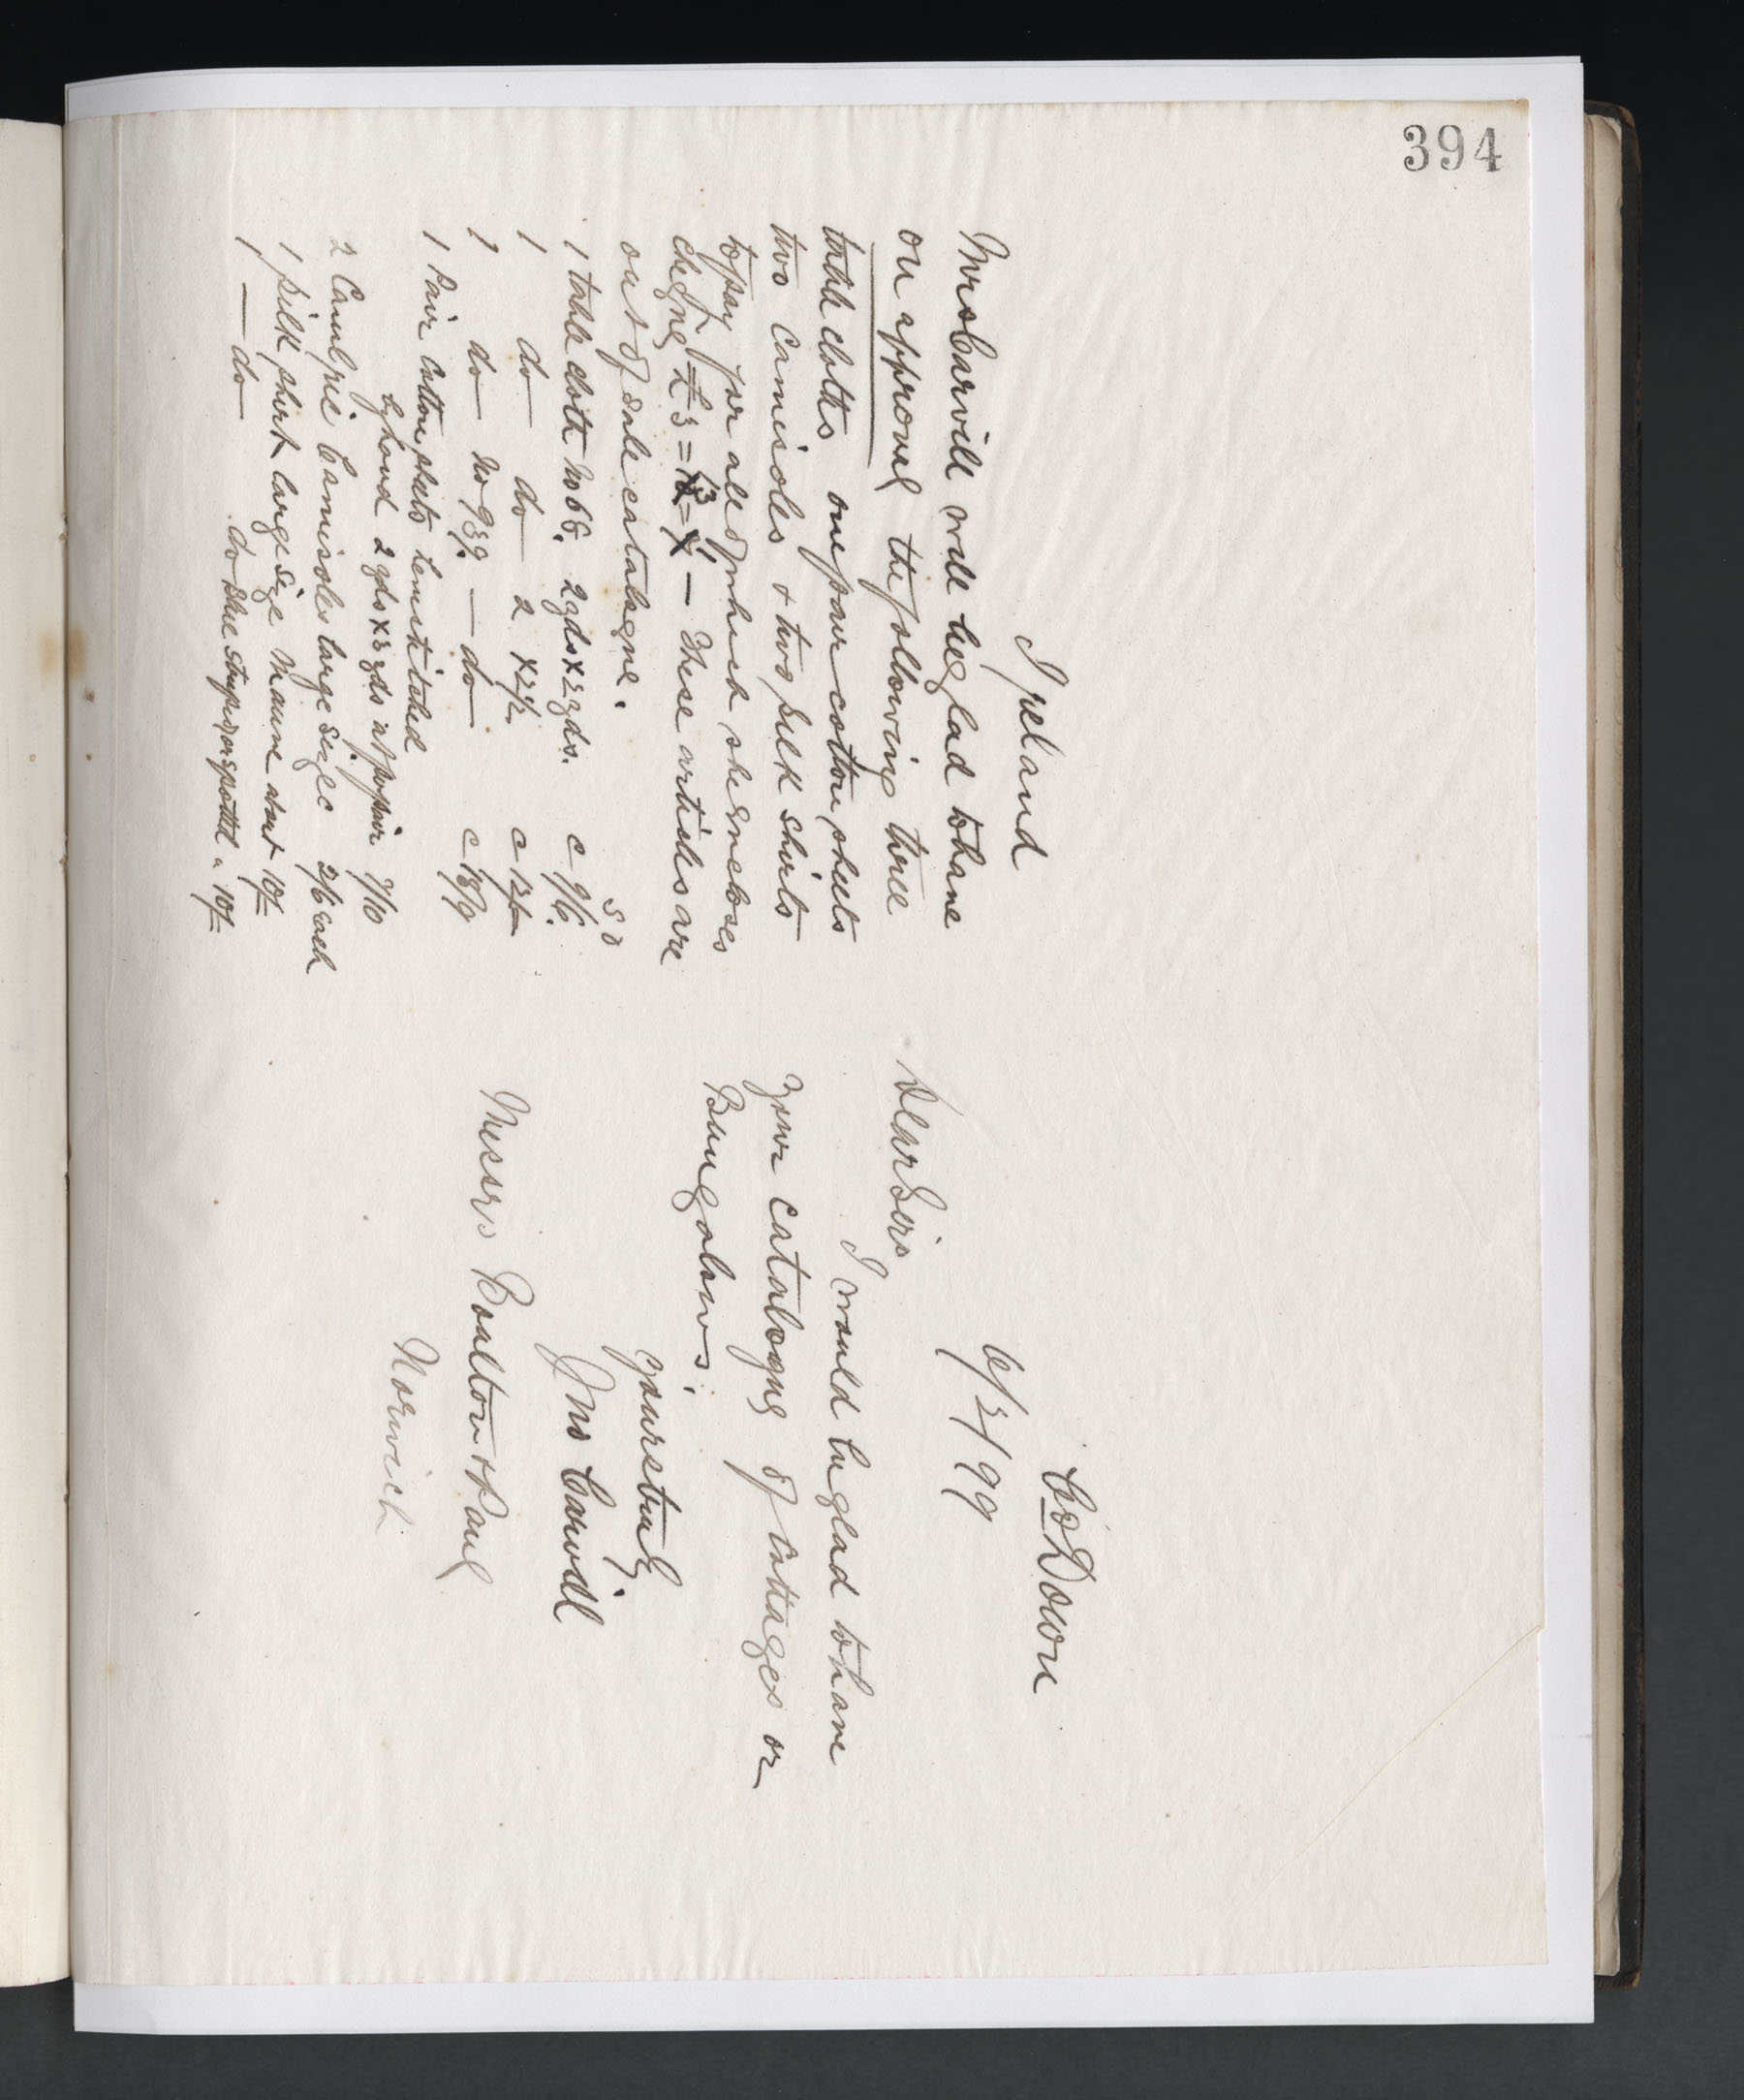 394
Ireland
Mrs Carvill will be glad to have
on approval the following three
table cloths one pair cotton sheets
two camisoles & two silk shirts
to pay for all of which she encloses
cheque £3=13=1 – These articles are
out of sale catalogue.
s d
1 table cloth No 68. 2 yds x 2 yds. c 9/6.
1 do do 2 x 2½ c 12/-
1 do No 939. do c 18/9
1 Pair Cotton sheets hemstitched
by hand 2 yds x 3 yds at pr pair 7/10
2 Camisoles large size 2/6 each
1 silk shirt large size Mauve about 10/-
1 do do blue striped or spotted " 10/-
Co Down
6/2/99
Dear Sirs
I would be glad to have
your catalogue of Cottages or
Bungalows.
Yours truly.
Jno Carvill
Messrs Boulton & Paul
Norwich